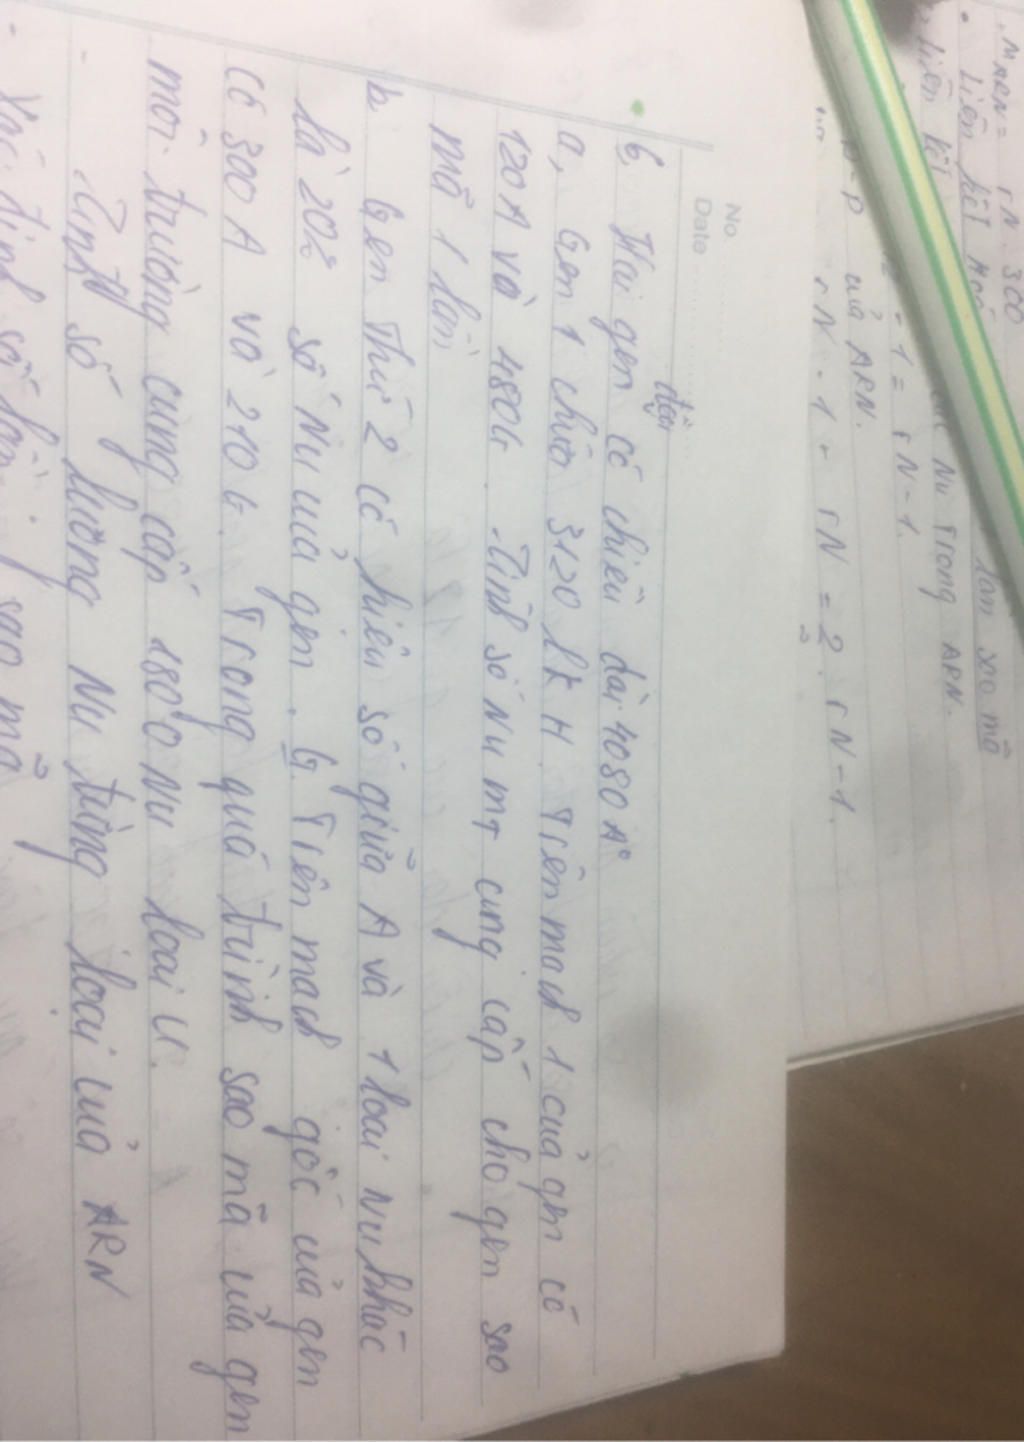 MARN = rN. 300
Liên kết Hoá
Liên kết
lần sao mã
Nu trong ARN.
- 1 = rN - 1.
P của ARN.
rN - 1 + rN = 2. rN - 1.
No.
Date
6, Hai gen có chiều dài 4080 A°
đều
a, Gen 1 chứa 3120 lk H. Trên mạch 1 của gen có
120 A và 480G. Tính số Nu mT cung cấp cho gen sao
mã 1 lần
b, Gen Thứ 2 có hiệu số giữa A và 1 loại nu khác
là 20% số Nu của gen. Trên mạch gốc của gen
có 300 A và 210 G. Trong quá trình sao mã của gen
môi trường cung cấp 1800 Nu loại U.
- Tính số lượng Nu từng loại của ARN
- Xác định số lần sao mã